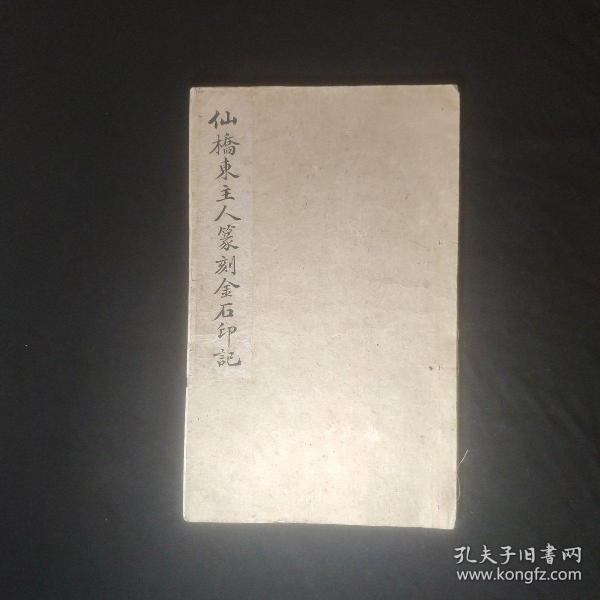 仙橋東主人篆刻金石印記
孔夫子旧書网
www.kongfz.com